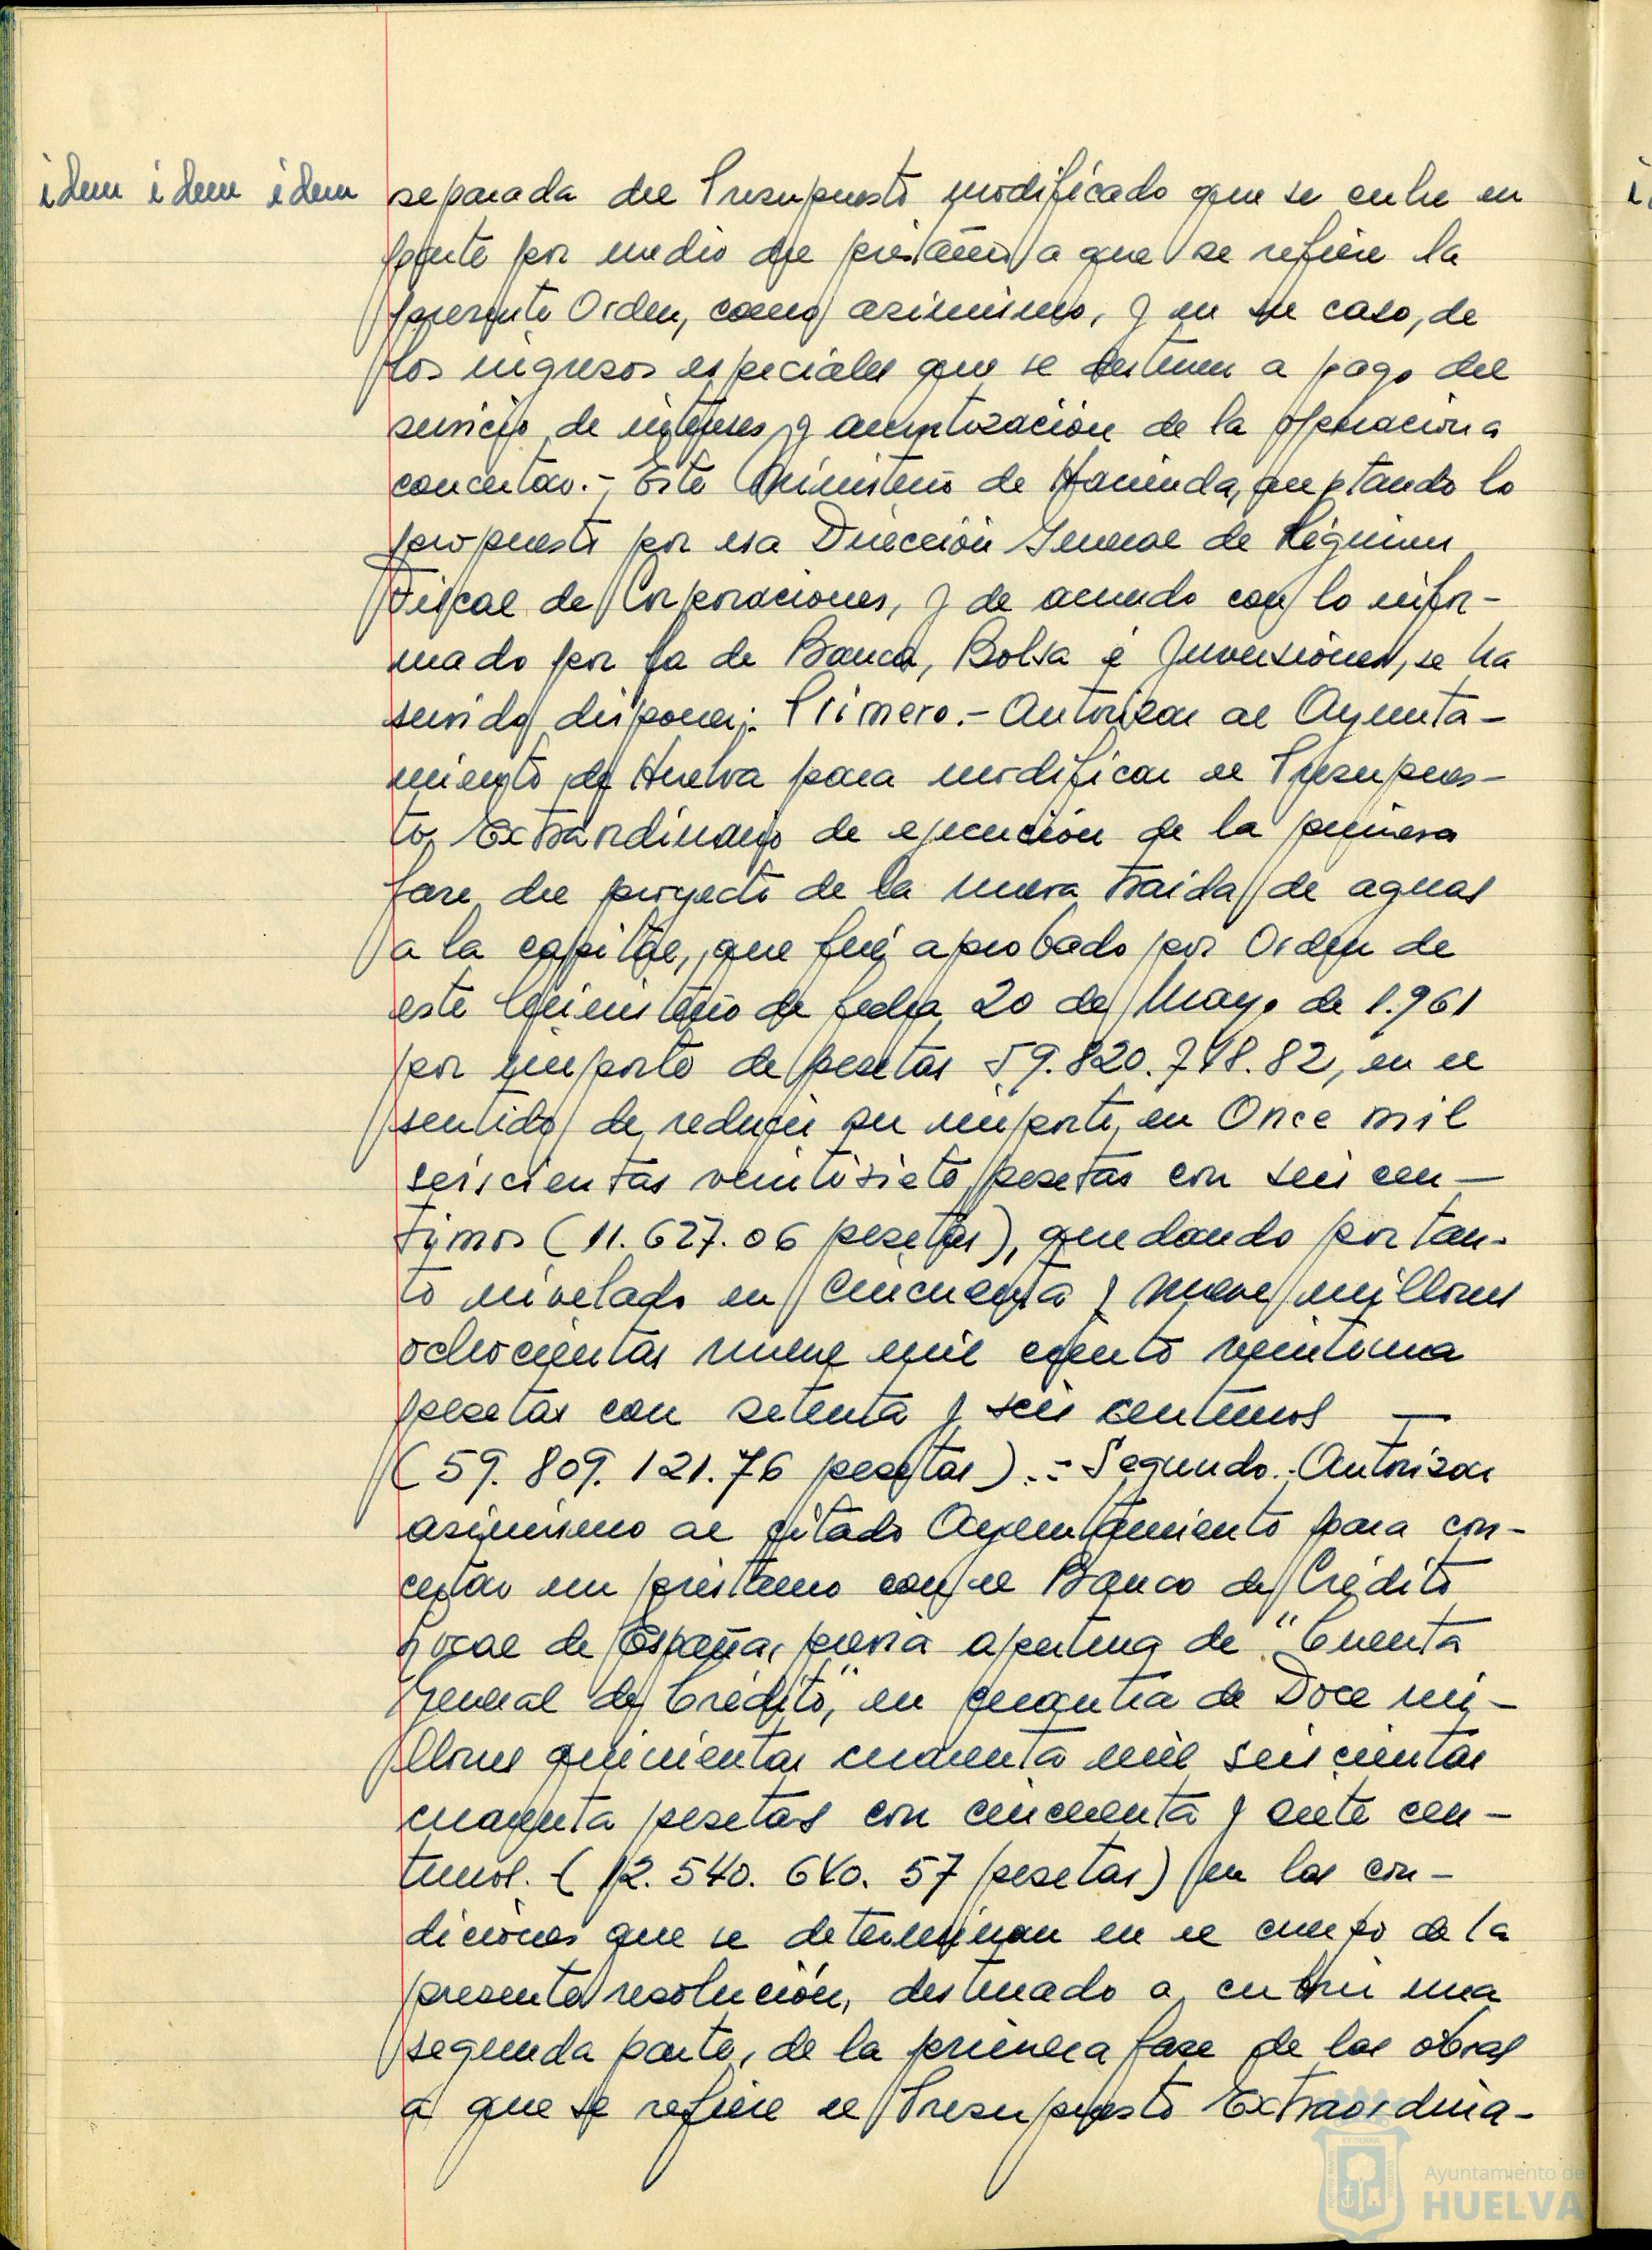 idem idem idem
separada del Presupuesto modificado que se cubre en
parte por medio del préstamo a que se refiere la
presente Orden, como asimismo, y en su caso, de
los ingresos especiales que se destinen a pago del
servicio de intereses y amortización de la operación a
concertar.- Este Ministerio de Hacienda, aceptando lo
propuesto por esa Dirección General de Régimen
Fiscal de Corporaciones, y de acuerdo con lo infor-
mado por la de Banca, Bolsa é Inversiones, se ha
servido disponer: Primero.- Autorizar al Ayunta-
miento de Huelva para modificar el Presupues-
to Extraordinario de ejecución de la primera
fase del proyecto de la nueva traida de aguas
a la capital, que fué aprobado por Orden de
este Ministerio de fecha 20 de Mayo de 1.961
por importe de pesetas 59.820.748.82, en el
sentido de reducir su importe, en Once mil
seiscientas veintisiete pesetas con seis cen-
timos (11.627.06 pesetas), quedando por tan-
to nivelado en Cincuenta y nueve millones
ochocientas nueve mil ciento veintiuna
pesetas con setenta y seis centimos —
(59.809.121.76 pesetas).- Segundo.- Autorizar
asimismo al citado Ayuntamiento para con-
certar un préstamo con el Banco de Crédito
Local de España, previa apertura de "Cuenta
General de Crédito", en cuantia de Doce mi-
llones quinientas cuarenta mil seiscientas
cuarenta pesetas con cincuenta y siete cen-
timos. (12.540.640.57 pesetas) en las con-
diciones que se determinan en el cuerpo de la
presente resolución, destinado a cubrir una
segunda parte, de la primera fase de las obras
a que se refiere el Presupuesto Extraordina-
Ayuntamiento de
HUELVA